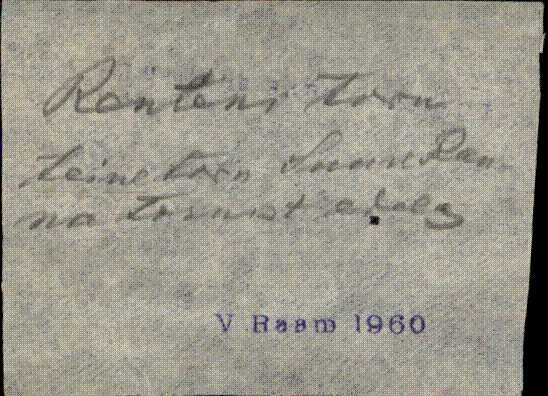 Renteni torn
teine torn Suur Ran
na tornist
V Raam 1960